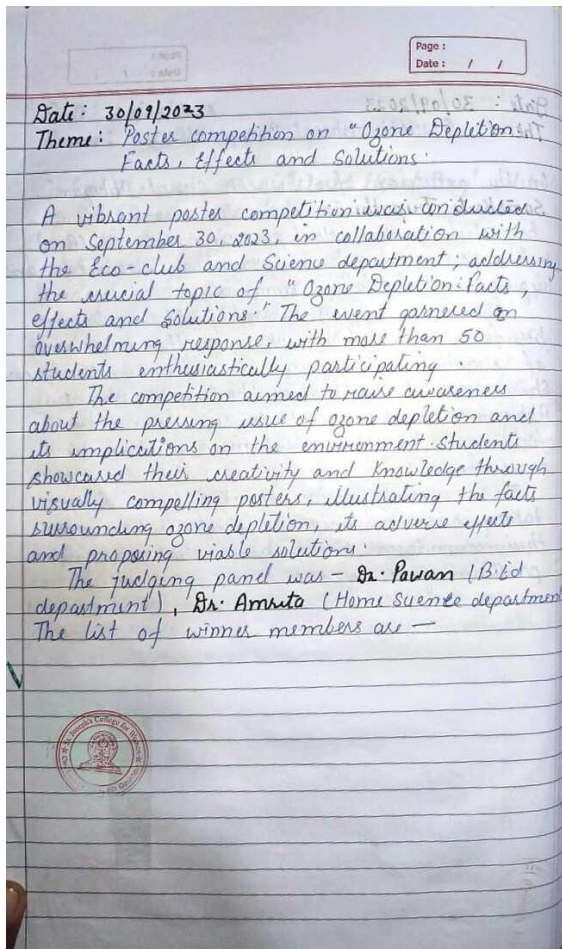 Page :
Date : / /
Date : 30/09/2023
Theme : Poster competition on "Ozone Depletion :
Facts, Effects and Solutions.
A vibrant poster competition was conducted
on September 30, 2023, in collaboration with
the Eco-club and Science department ; addressing
the crucial topic of "Ozone Depletion : Facts,
effects and Solutions." The event garnered an
overwhelming response, with more than 50
students enthusiastically participating.
The competition aimed to raise awareness
about the pressing issue of ozone depletion and
its implications on the environment. Students
showcased their creativity and knowledge through
visually compelling posters, illustrating the facts
surrounding ozone depletion, its adverse effects
and proposing viable solutions.
The judging panel was – Dr. Pawan (B.Ed
department), Dr. Amrita (Home Science department
The list of winner members are –
St. Joseph's College for Women